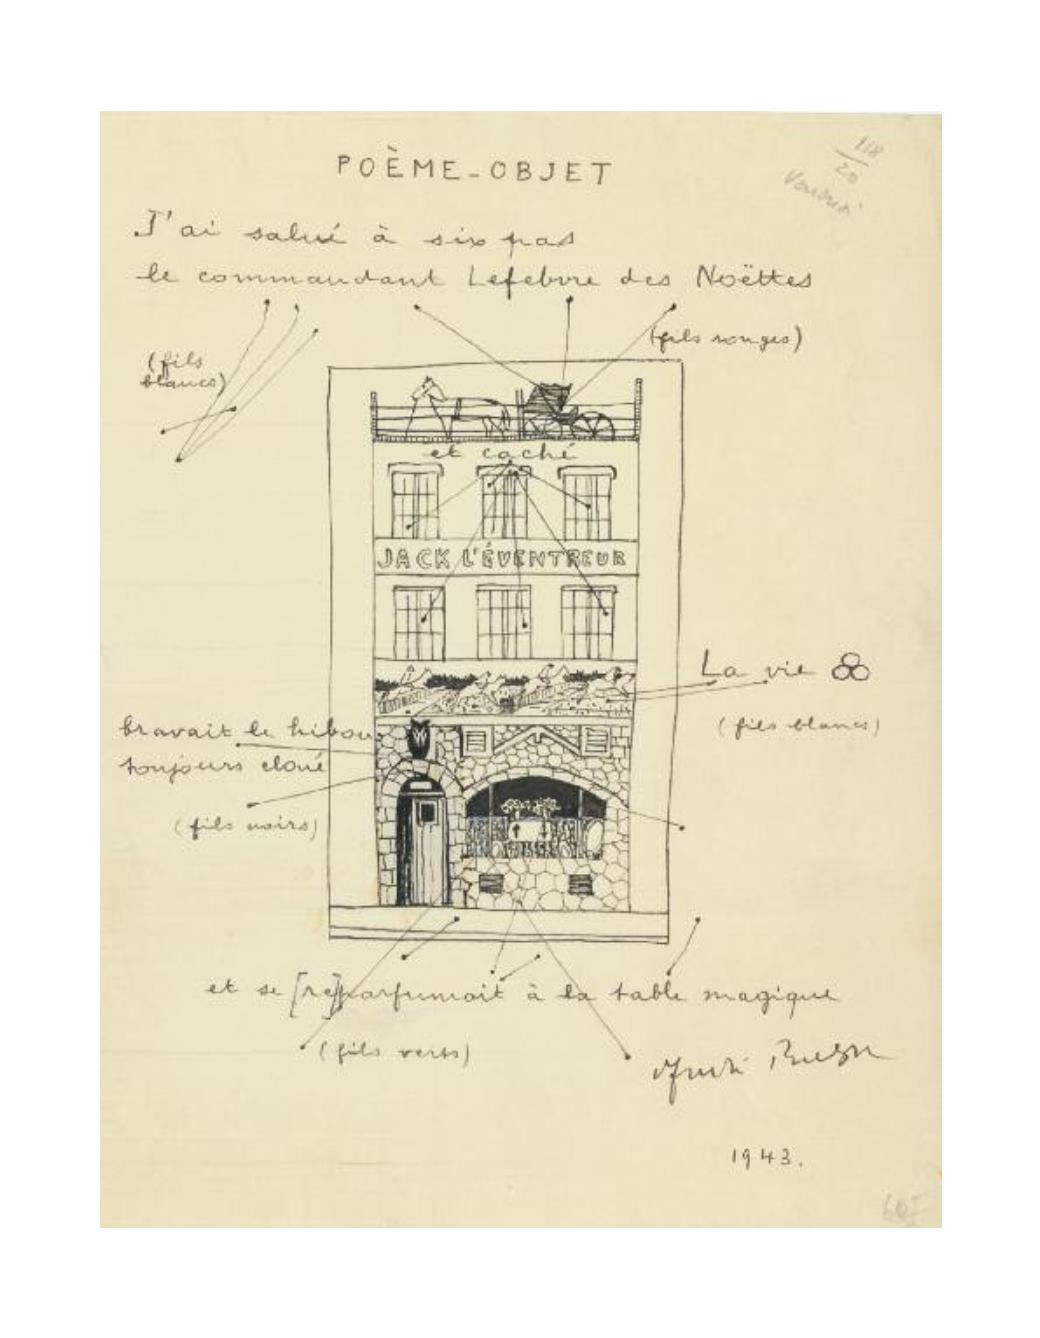 POÈME-OBJET
118
20
J'ai salué à six pas
le commandant Lefebvre des Noëttes
(fils rouges)
(fils
blancs)
et caché
JACK L'ÉVENTREUR
La vie
(fils blancs)
bravait le hibou
toujours cloué
(fils noirs)
et se [re]parfumait à la table magique
(fils verts)
André Breton
1943.